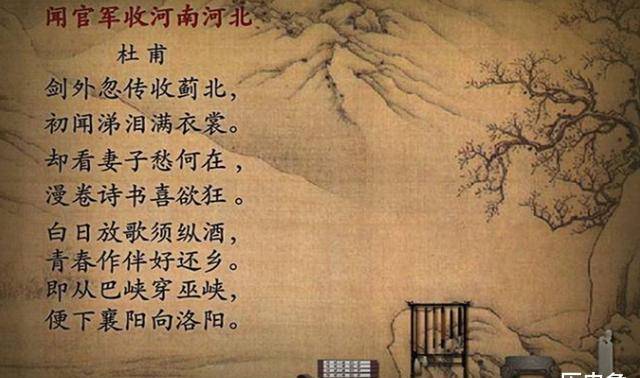 闻官军收河南河北
杜甫
剑外忽传收蓟北，
初闻涕泪满衣裳。
却看妻子愁何在，
漫卷诗书喜欲狂。
白日放歌须纵酒，
青春作伴好还乡。
即从巴峡穿巫峡，
便下襄阳向洛阳。